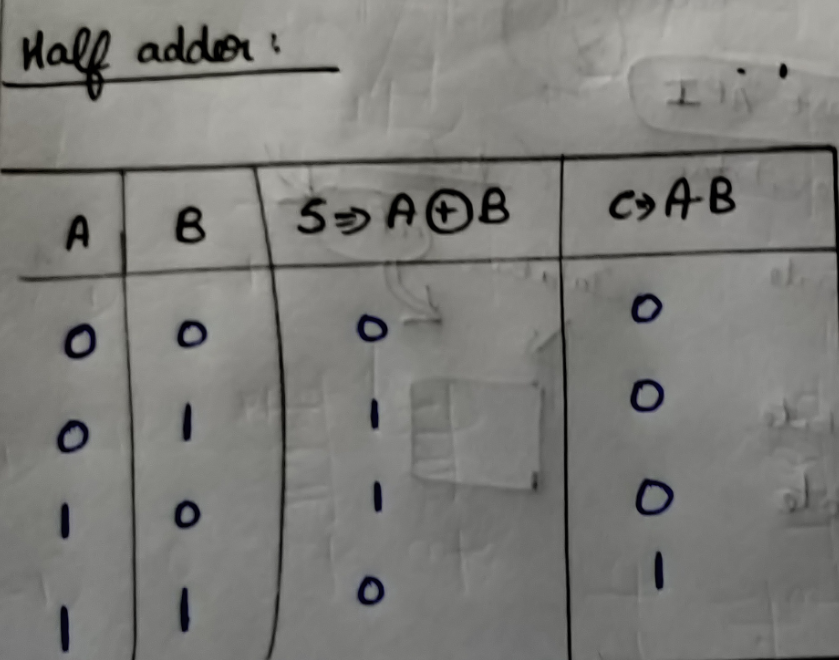 Half adder:
A B S⇒ A⊕B C→A·B
0 0 0 0
0 1 1 0
1 0 1 0
1 1 0 1